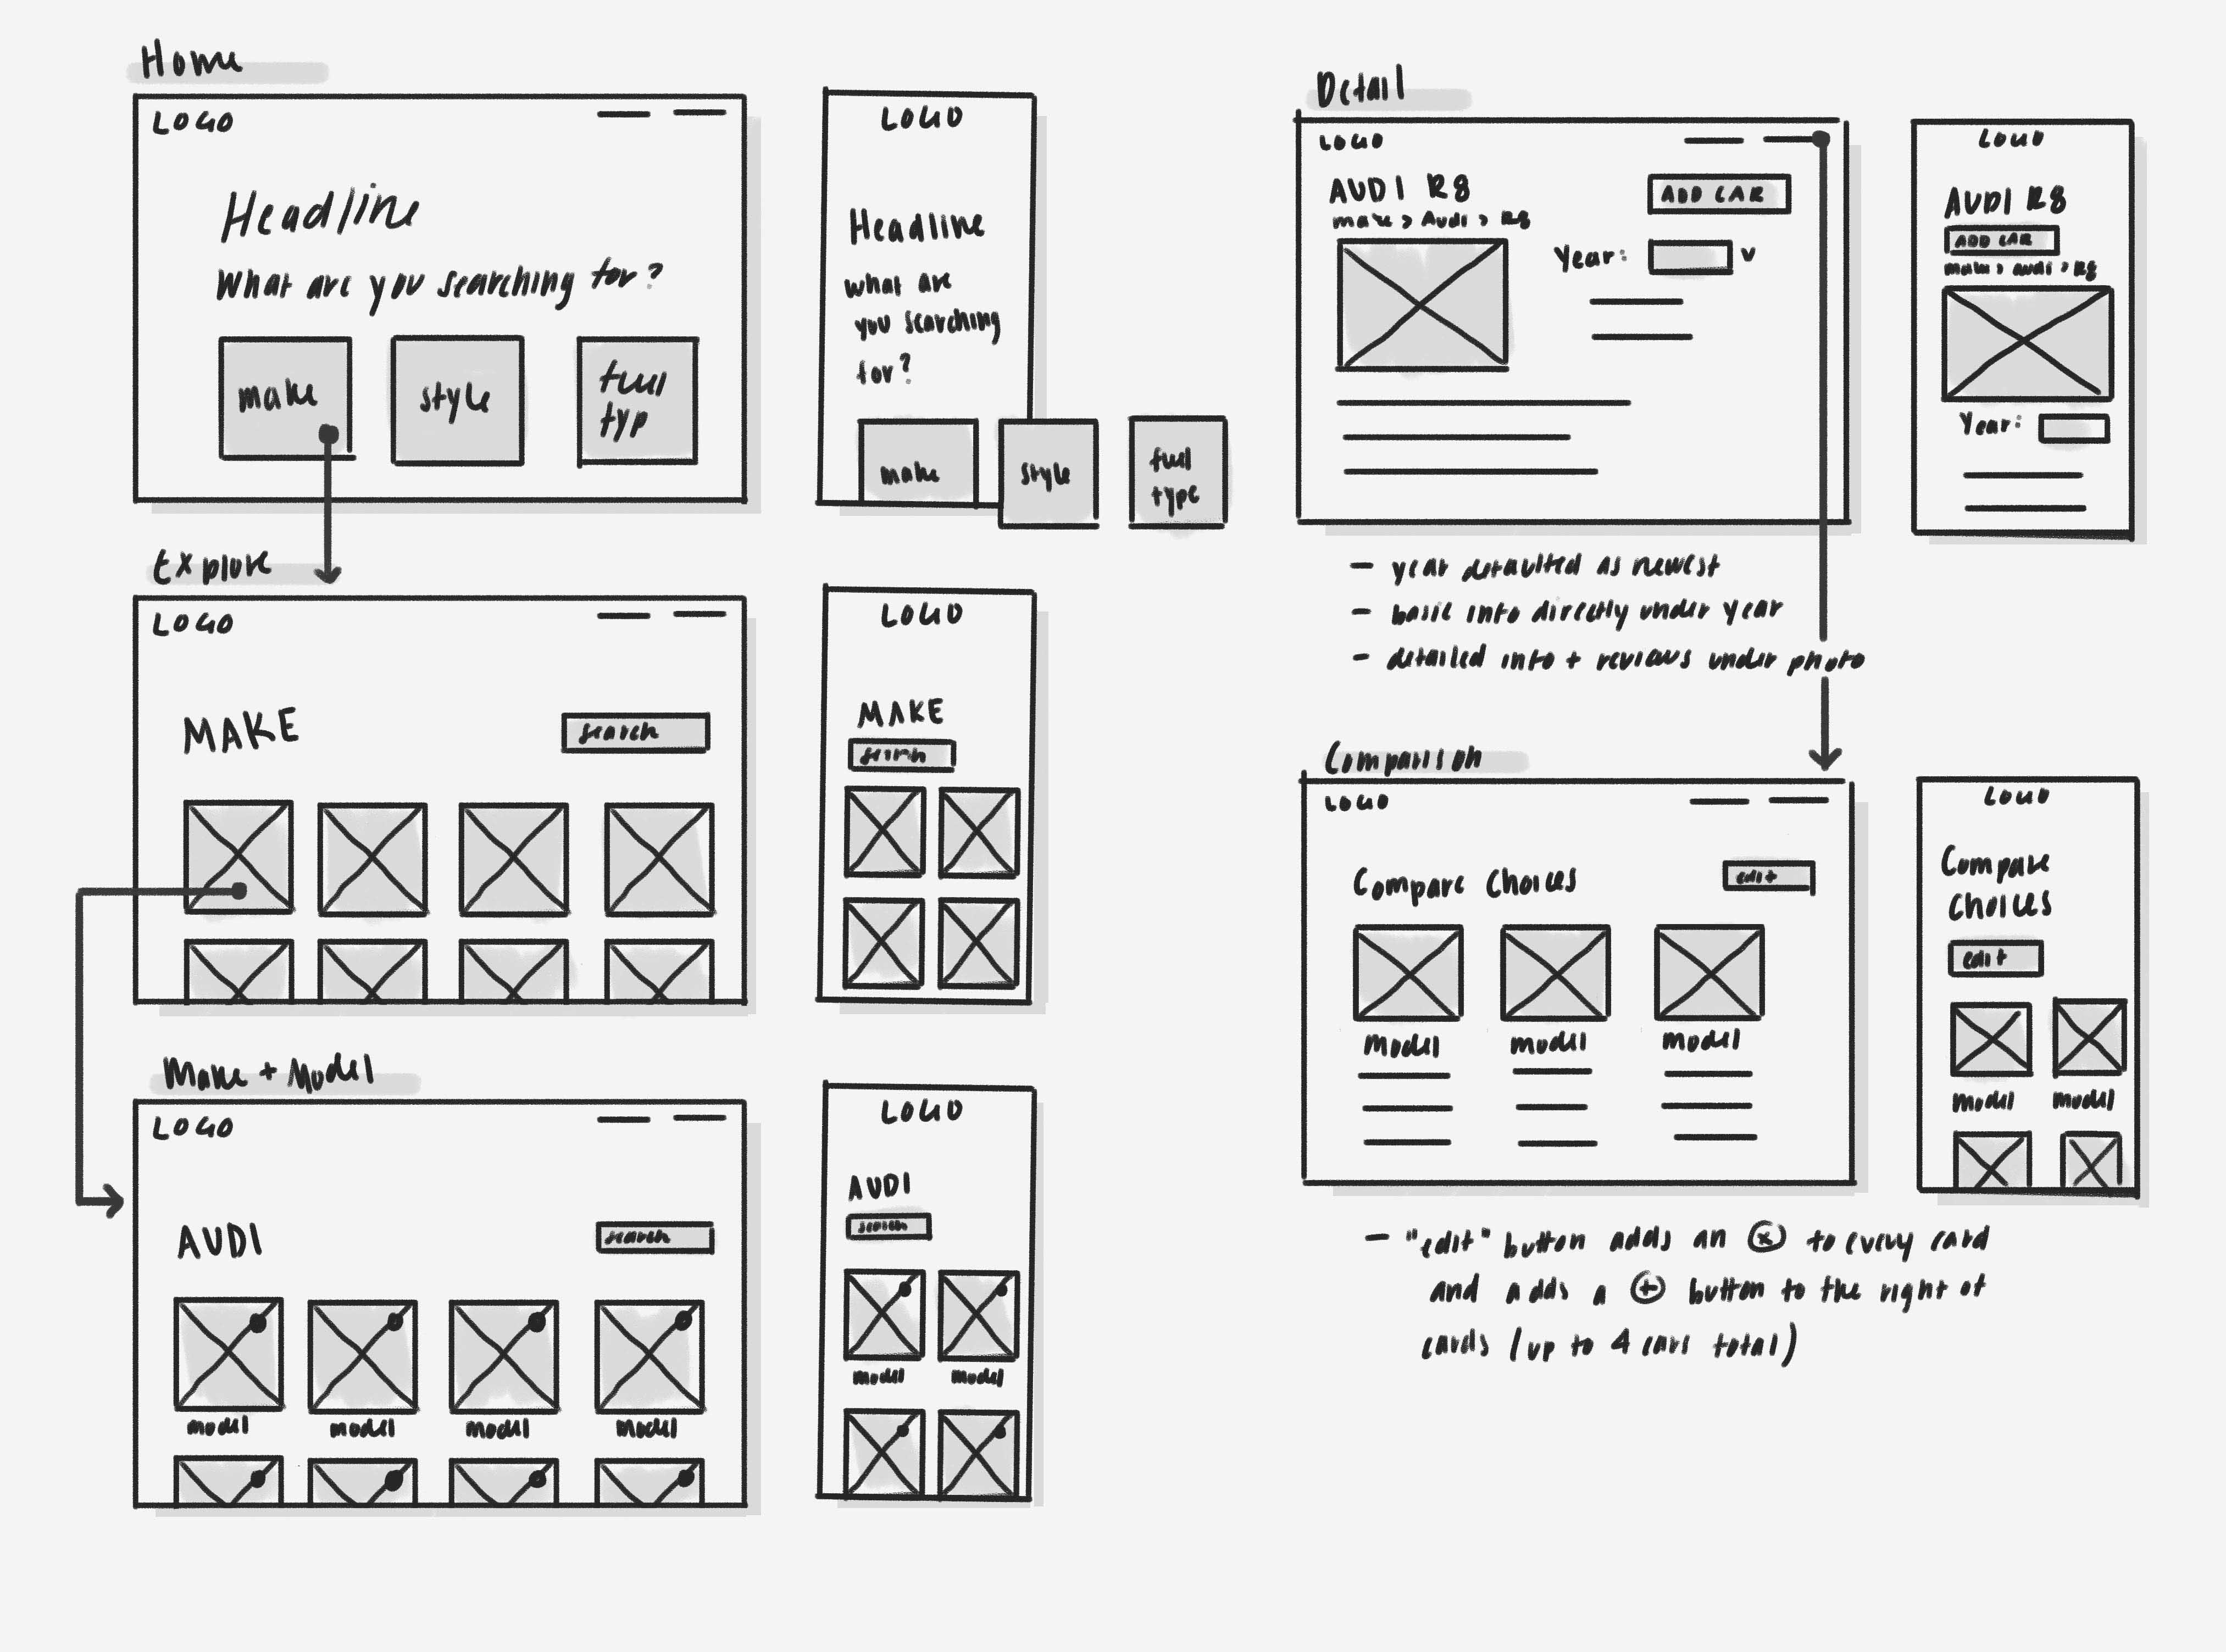 Home
LOGO
Headline
What are you searching for?
make
style
fuel
typ
LOGO
Headline
what are
you searching
for?
make
style
fuel
type
Explore
LOGO
MAKE
search
LOGO
MAKE
search
Make + Model
LOGO
AUDI
search
model
model
model
model
LOGO
AUDI
search
model
model
Detail
LOGO
AUDI R8
ADD CAR
make > Audi > R8
Year:
v
LOGO
AUDI R8
ADD CAR
make > audi > R8
Year:
- year defaulted as newest
- basic info directly under year
- detailed info + reviews under photo
Comparison
LOGO
Compare Choices
edit
model
model
model
LOGO
Compare
Choices
edit
model
model
- "edit" button adds an ⓧ to every card
and adds a ⊕ button to the right of
cards (up to 4 cars total)